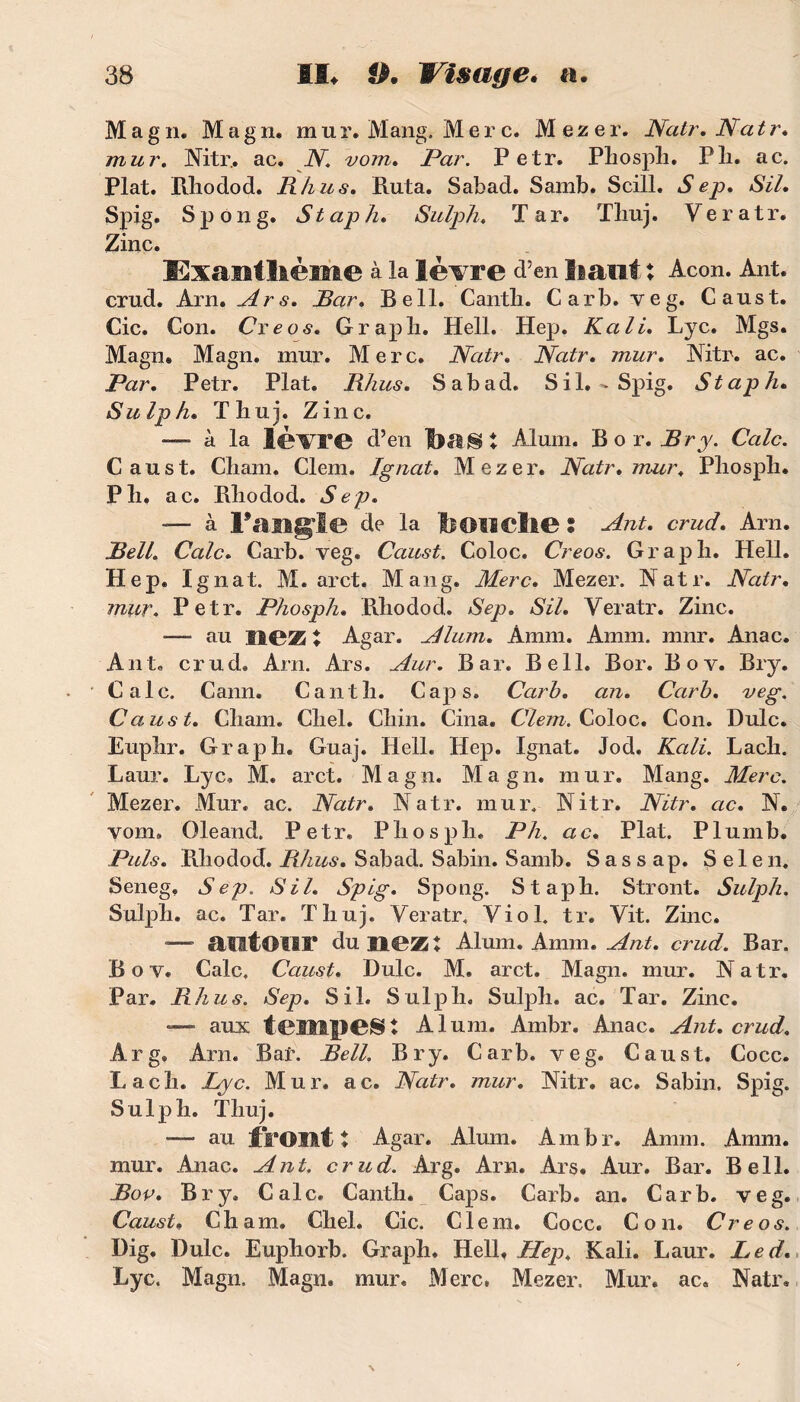 38 II. 9. Visage. a.
Magn. Magn. mur. Mang. Merc. Mezer. Natr. Natr.
mur. Nitr. ac. N. vom. Par. Petr. Phosph. Ph. ac.
Plat. Rhodod. Rhus. Ruta. Sabad. Samb. Scill. Sep. Sil.
Spig. Spong. Staph. Sulph. Tar. Thuj. Veratr.
Zinc.
Exanthème à la lèvre d'en haut: Acon. Ant.
crud. Arn. Ars. Bar. Bell. Canth. Carb. veg. Caust.
Cic. Con. Creos. Graph. Hell. Hep. Kali. Lyc. Mgs.
Magn. Magn. mur. Merc. Natr. Natr. mur. Nitr. ac.
Par. Petr. Plat. Rhus. Sabad. Sil. - Spig. Staph.
Sulph. Thuj. Zinc.
— à la lèvre d'en bas: Alum. Bor. Bry. Calc.
Caust. Cham. Clem. Ignat. Mezer. Natr. mur. Phosph.
Ph. ac. Rhodod. Sep.
— à l'angle de la bouche: Ant. crud. Arn.
Bell. Calc. Carb. veg. Caust. Coloc. Creos. Graph. Hell.
Hep. Ignat. M. arct. Mang. Merc. Mezer. Natr. Natr.
mur. Petr. Phosph. Rhodod. Sep. Sil. Veratr. Zinc.
— au nez: Agar. Alum. Amm. Amm. mnr. Anac.
Ant. crud. Arn. Ars. Aur. Bar. Bell. Bor. Bov. Bry.
Calc. Cann. Canth. Caps. Carb. an. Carb. veg.
Caust. Cham. Chel. Chin. Cina. Clem. Coloc. Con. Dulc.
Euphr. Graph. Guaj. Hell. Hep. Ignat. Jod. Kali. Lach.
Laur. Lyc. M. arct. Magn. Magn. mur. Mang. Merc.
Mezer. Mur. ac. Natr. Natr. mur. Nitr. Nitr. ac. N.
vom. Oleand. Petr. Phosph. Ph. ac. Plat. Plumb.
Puls. Rhodod. Rhus. Sabad. Sabin. Samb. Sassap. Selen.
Seneg. Sep. Sil. Spig. Spong. Staph. Stront. Sulph.
Sulph. ac. Tar. Thuj. Veratr. Viol. tr. Vit. Zinc.
— autour du nez: Alum. Amm. Ant. crud. Bar.
Bov. Calc. Caust. Dulc. M. arct. Magn. mur. Natr.
Par. Rhus. Sep. Sil. Sulph. Sulph. ac. Tar. Zinc.
— aux tempes: Alum. Ambr. Anac. Ant. crud.
Arg. Arn. Bar. Bell. Bry. Carb. veg. Caust. Cocc.
Lach. Lyc. Mur. ac. Natr. mur. Nitr. ac. Sabin. Spig.
Sulph. Thuj.
— au front: Agar. Alum. Ambr. Amm. Amm.
mur. Anac. Ant. crud. Arg. Arn. Ars. Aur. Bar. Bell.
Bov. Bry. Calc. Canth. Caps. Carb. an. Carb. veg.
Caust. Cham. Chel. Cic. Clem. Cocc. Con. Creos.
Dig. Dulc. Euphorb. Graph. Hell. Hep. Kali. Laur. Led.
Lyc. Magn. Magn. mur. Merc. Mezer. Mur. ac. Natr.